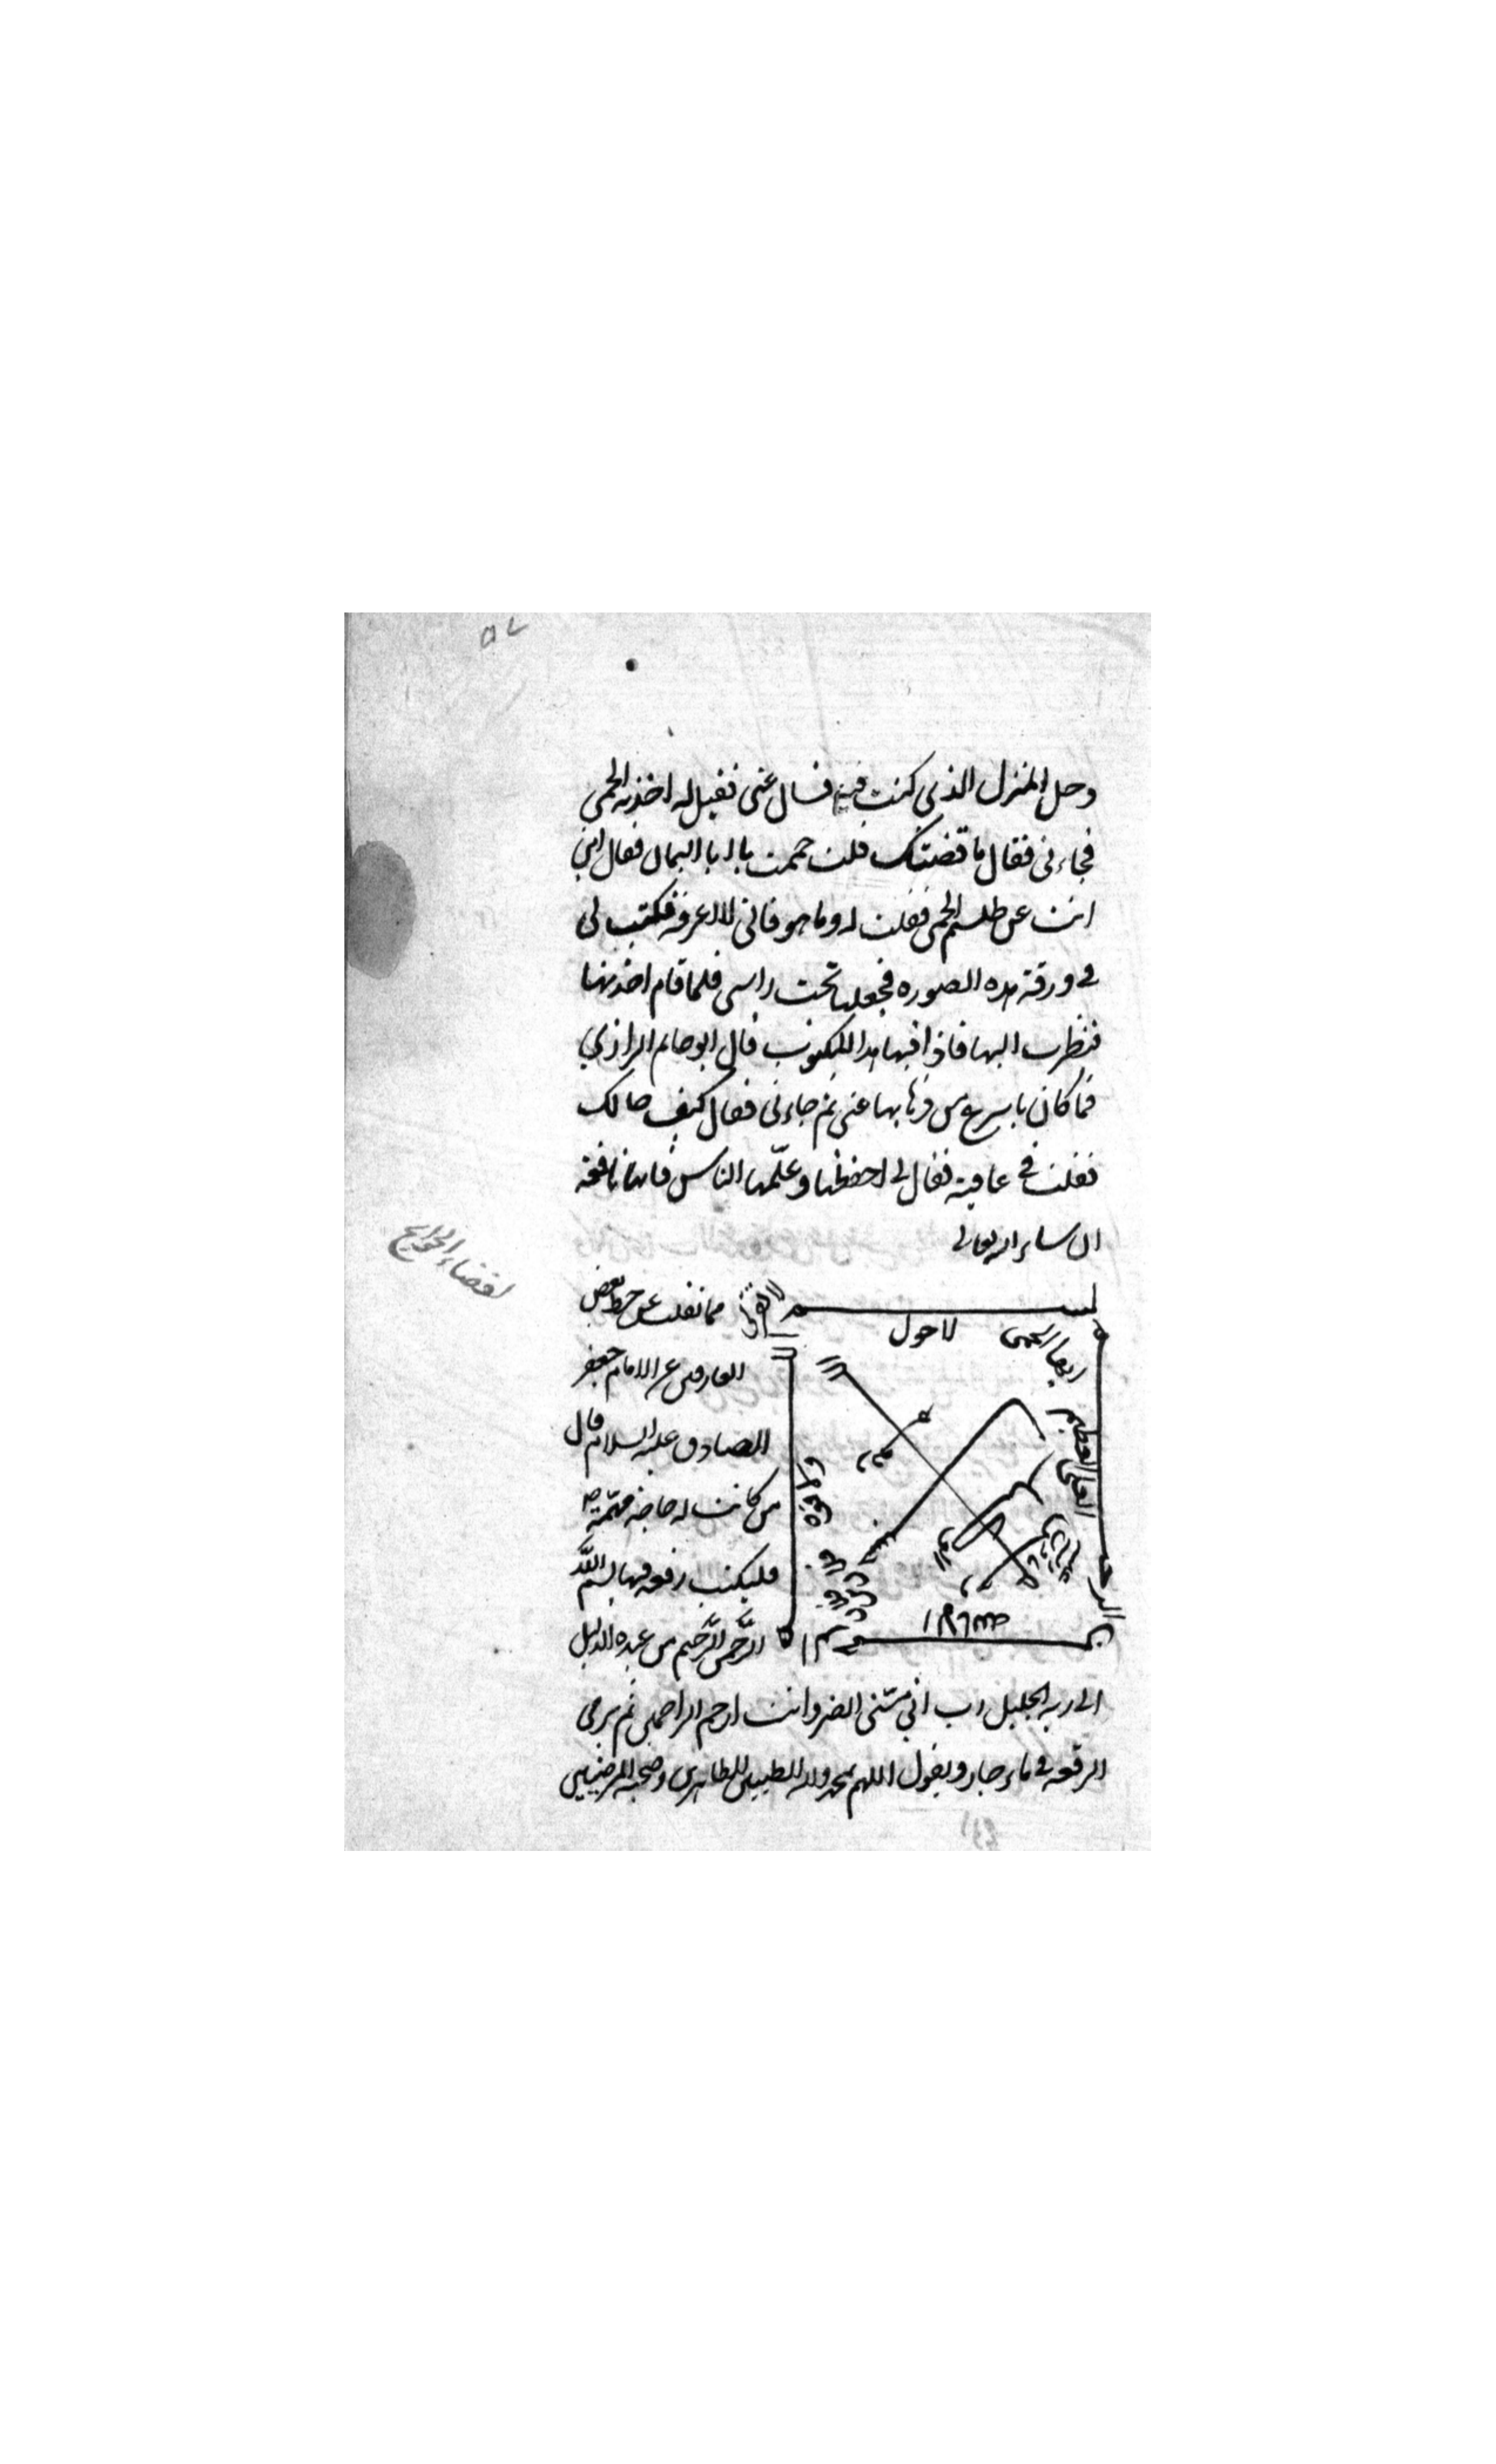 دخل المنزل الذي كنت فيه فسال عني فقيل له اخذته الحمى
فجاءني فقال ما قضتك قلت حممت يا ابا اليمان فقال اين
انت عن طلسم الحمى فقلت له وما هو فاني لا اعرفه فكتب لي
في ورقة هذه الصورة فجعلها تحت راسي فلما قام اخذتها
فنظرت اليها فاذا فيها هذا المكتوب قال ابو حاتم الرازي
فما كان باسرع من ذهابها عني ثم جاءني فقال كيف حالك
فقلت في عافية فقال لي احفظها وعلّمها الناس فانها نافعة
ان شاء الله تعالى
لقضاء الحوايج
لا حول
ولا قوة
العلي العظيم
مما نقلت عن خط بعض
العارفين عن الامام جعفر
الصادق عليه السلام قال
من كانت له حاجة مهمّة
فليكتب رقعة فيها بسم اللّه
الرّحمن الرّحيم من عبده الذليل
الى ربه الجليل رب اني مسّني الضر وانت ارحم الراحمين ثم يرمي
الرقعة في ماء جار ويقول اللهم بمحمد واله الطيبين الطاهرين وصحبه المرضيين